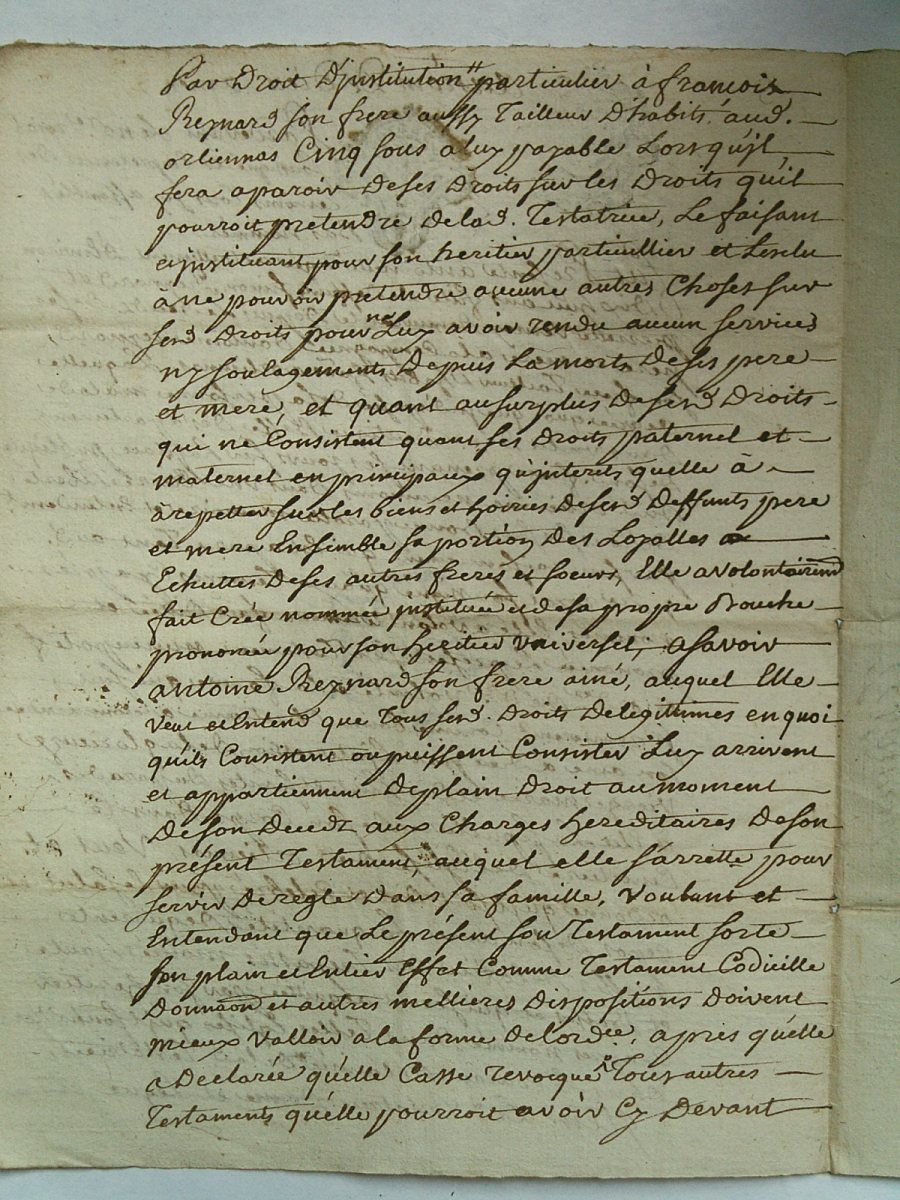 Par Droit D'jnstitution particulier à francois
Reynard son frere aussy Tailleur D'habits, aud.
orliennas Cinq sous a luy payable Lorsqu'jl
fera aparoir De ses Droits sur les Droits qu'il
pourroit pretendre de lad. Testatrice, Le faisant
et jnstituant pour son heritier particullier et L'exclu
à ne pouvoir pretendre aucune autres Choses sur
sesd Droits pour ne Luy avoir rendu aucun services
ny soulagements Depuis La morts De ses pere
et mere, et quant au surplus De sesd Droits
qui ne Consistent quant ses Droits paternel et
maternel en principaux qu'jnterets quelle à
a repetter sur les biens et hoiries De sesd Deffunts pere
et mere Ensemble sa portion Des Loyalles
Echuttes De ses autres freres et soeurs, Elle a volontairemt
fait Créé nommée jnstituée et de sa propre Bouche
prononcé pour son heritier universel, a savoir
antoine Reynard son frere ainé, auquel Elle
veut et Entend que Tous sesd. Droits De legittimes en quoi
qu'ils Consistent ou puissent Consister Luy arrivent
et appartiennent De plain Droit au moment
De son Decedz aux Charges hereditaires De son
présent Testament, auquel elle s'arrette pour
servir De regle Dans sa famille, voulant et
Entendant que Le présent son Testament sorte
son plain et Entier Effet Comme Testament Codicille
Donnaôn et autres mellieres Dispositions Doivent
mieux valloir a la forme De lordce, apres qu'elle
a Declarée qu'elle Casse revocque Tous autres
Testaments qu'elle pourroit avoir Cy Devant